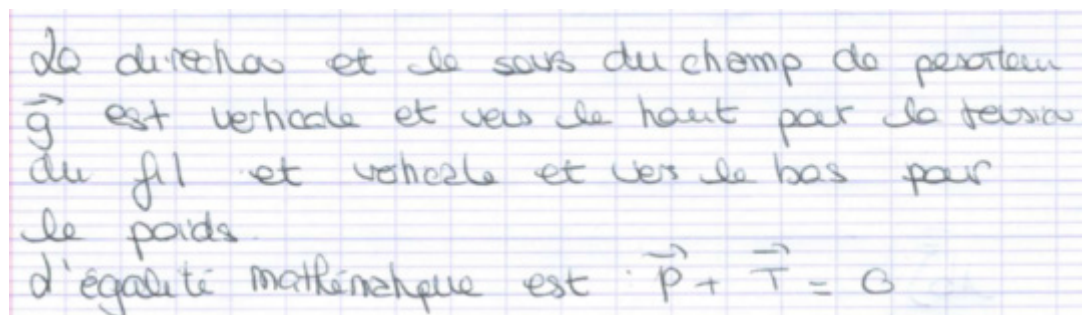 La direction et le sens du champ de pesanteur
g⃗ est verticale et vers le haut pour la tension
du fil et verticale et vers le bas pour
le poids.
L'égalité mathématique est : P⃗ + T⃗ = 0